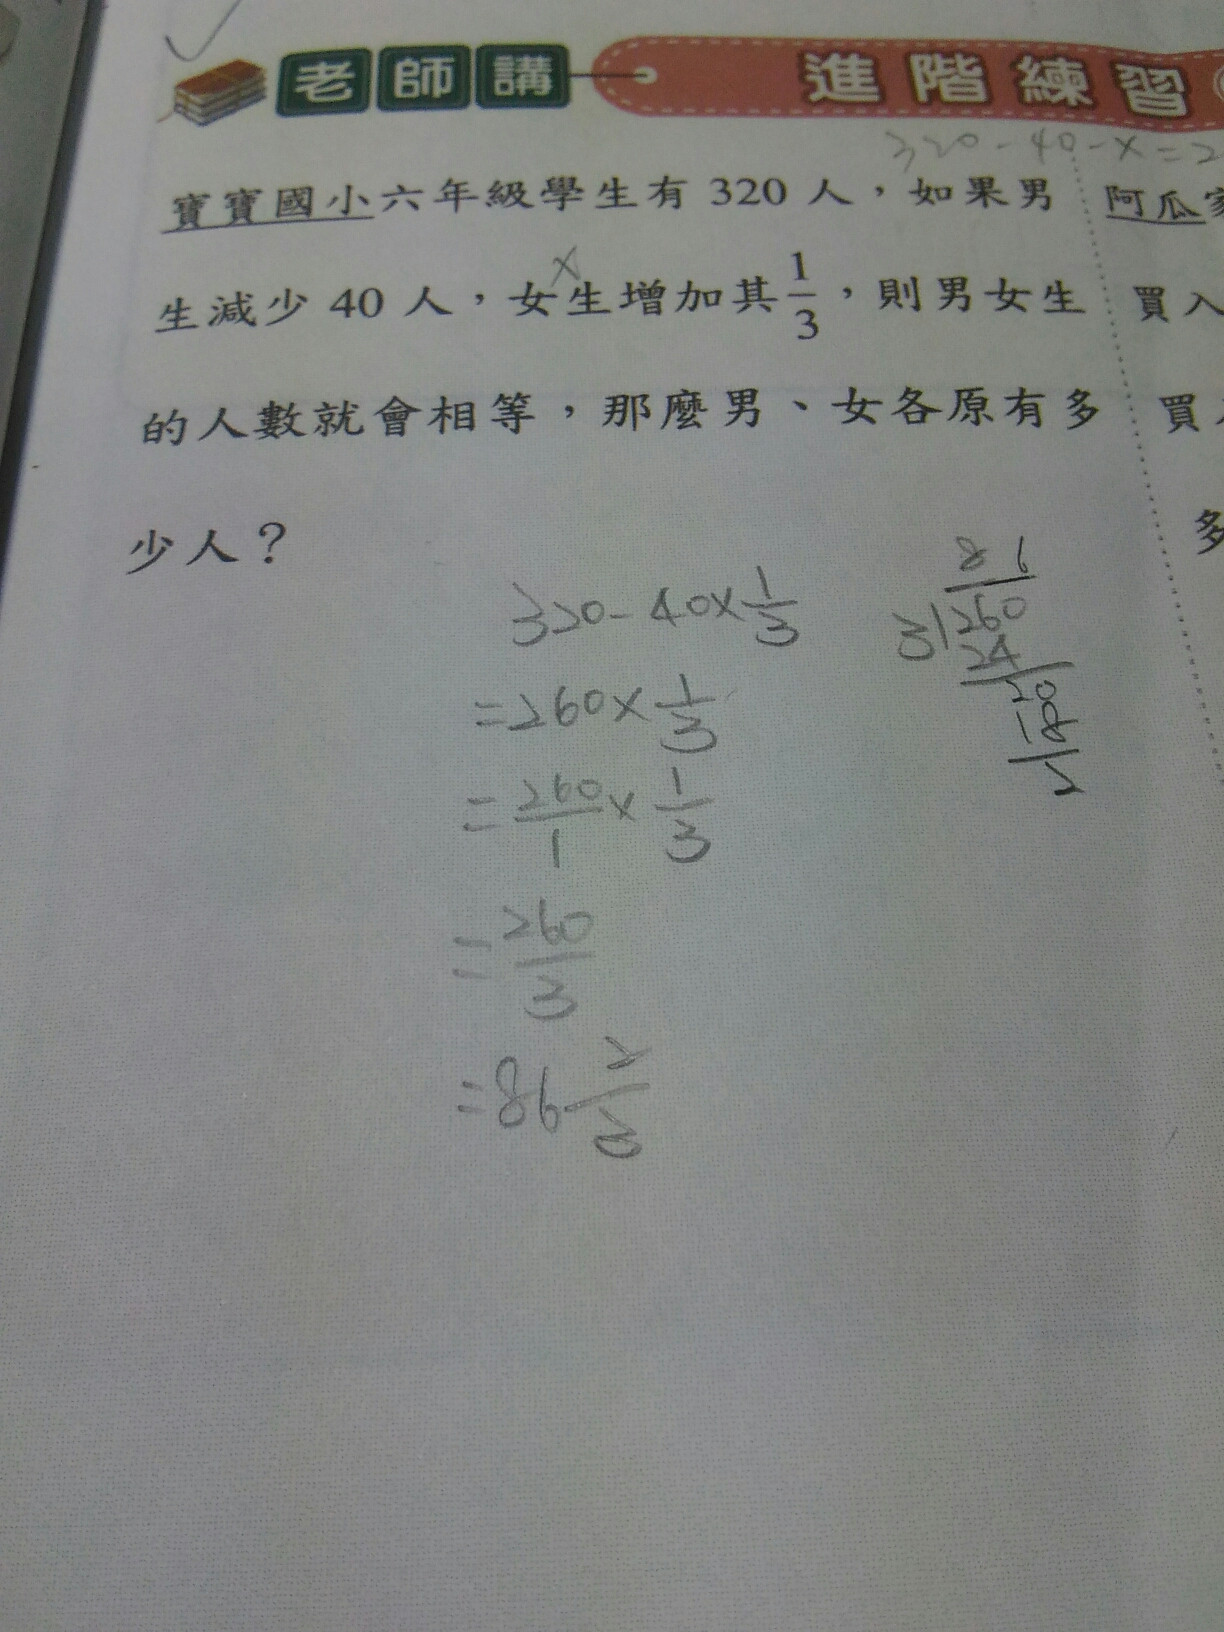 老師講 進階練習
320-40-x=2
寶寶國小六年級學生有 320 人，如果男
生減少 40 人，女生增加其 1/3，則男女生
x
的人數就會相等，那麼男、女各原有多
少人？
阿瓜家
買入
買
多
320-40×1/3
=260×1/3
=260/1×1/3
=260/3
=86 2/3
86
3)260
24
20
18
2